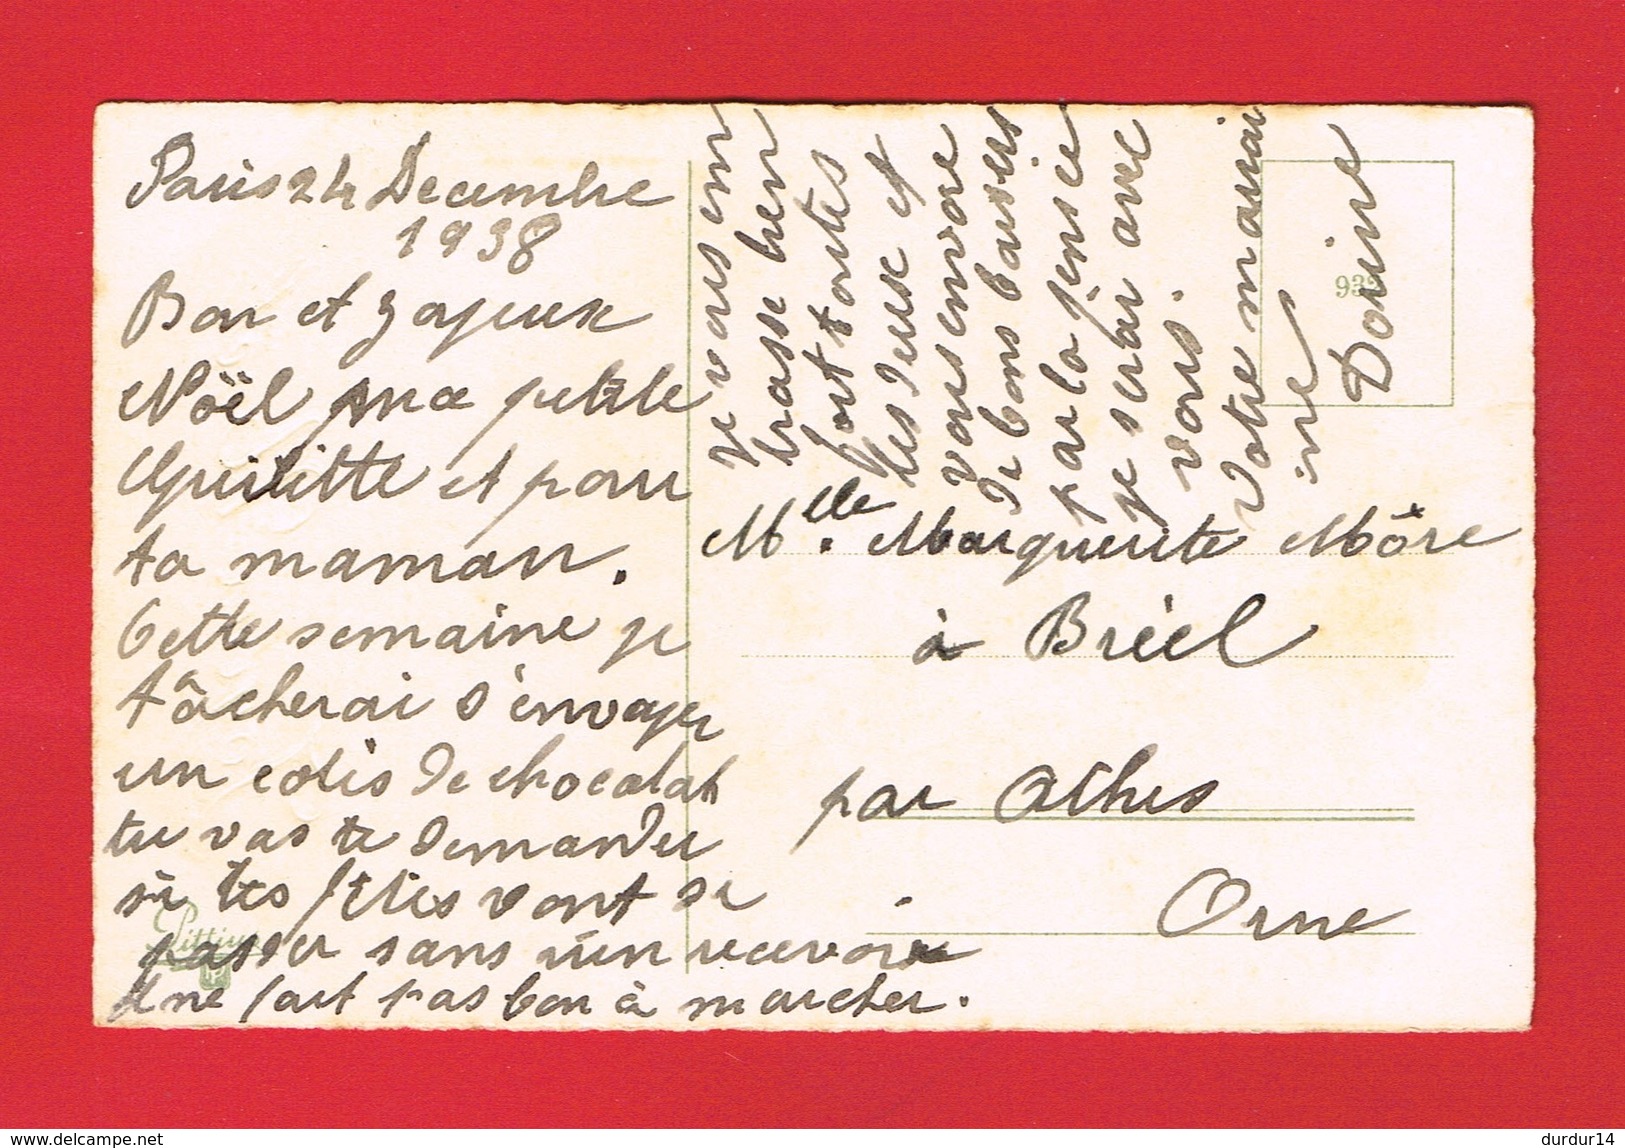 Paris 24 Decembre
1938
Bon et Joyeux
Nöel ma petite
Guiitte et pour
ta maman.
Cette semaine je
tâcherai d'envoyer
un colis de chocolat
tu vas te demander
si les fêtes vont se
passer sans rien recevoir
Il ne fait pas bon à marcher.
je vous em
brasse bien
fort toutes
les deux et
vous envoie
de bons baisers
par la pensée
je serai avec
vous.
Votre marrai
ine
Douine
932
Mlle. Marguerite Môre
à Bréel
par Athis
Orne
durdur14
www.delcampe.net